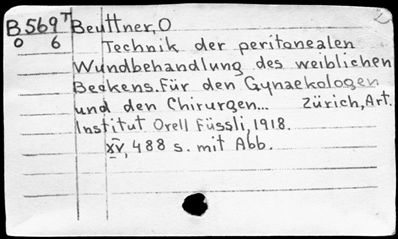 B569T Beuttner, O
0 6 Technik der peritonealen
Wundbehandlung des weiblichen
Beckens. Für den Gynaekologen
und den Chirurgen... Zürich, Art.
Institut Orell Füssli, 1918.
XV, 488 s. mit Abb.